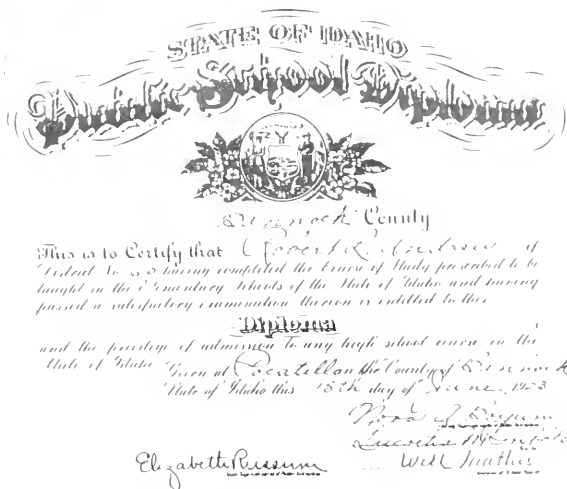 STATE OF IDAHO
Public School Diploma
Bannock County
This is to Certify that Robert L. Andrews of
District No. having completed the Course of Study prescribed to be
taught in the Elementary Schools of the State of Idaho and having
passed a satisfactory examination thereon is entitled to this
Diploma
and the privilege of admission to any high school course in the
State of Idaho. Given at Pocatello in the County of Bannock
State of Idaho this 15th day of June 1923
Elizabeth Russum
Will Mathis